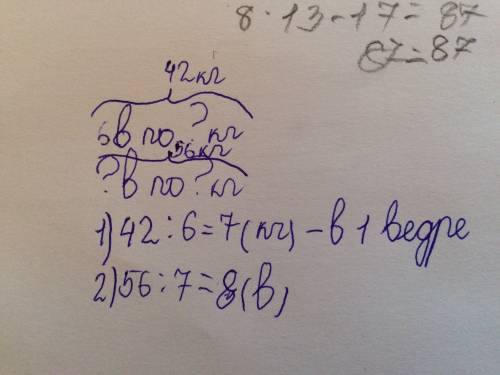 8 · 13 - 17 = 87
87 = 87
42 кг
6в по ? кг
56 кг
? в по ? кг
1) 42 : 6 = 7 (кг) - в 1 ведре
2) 56 : 7 = 8 (в)